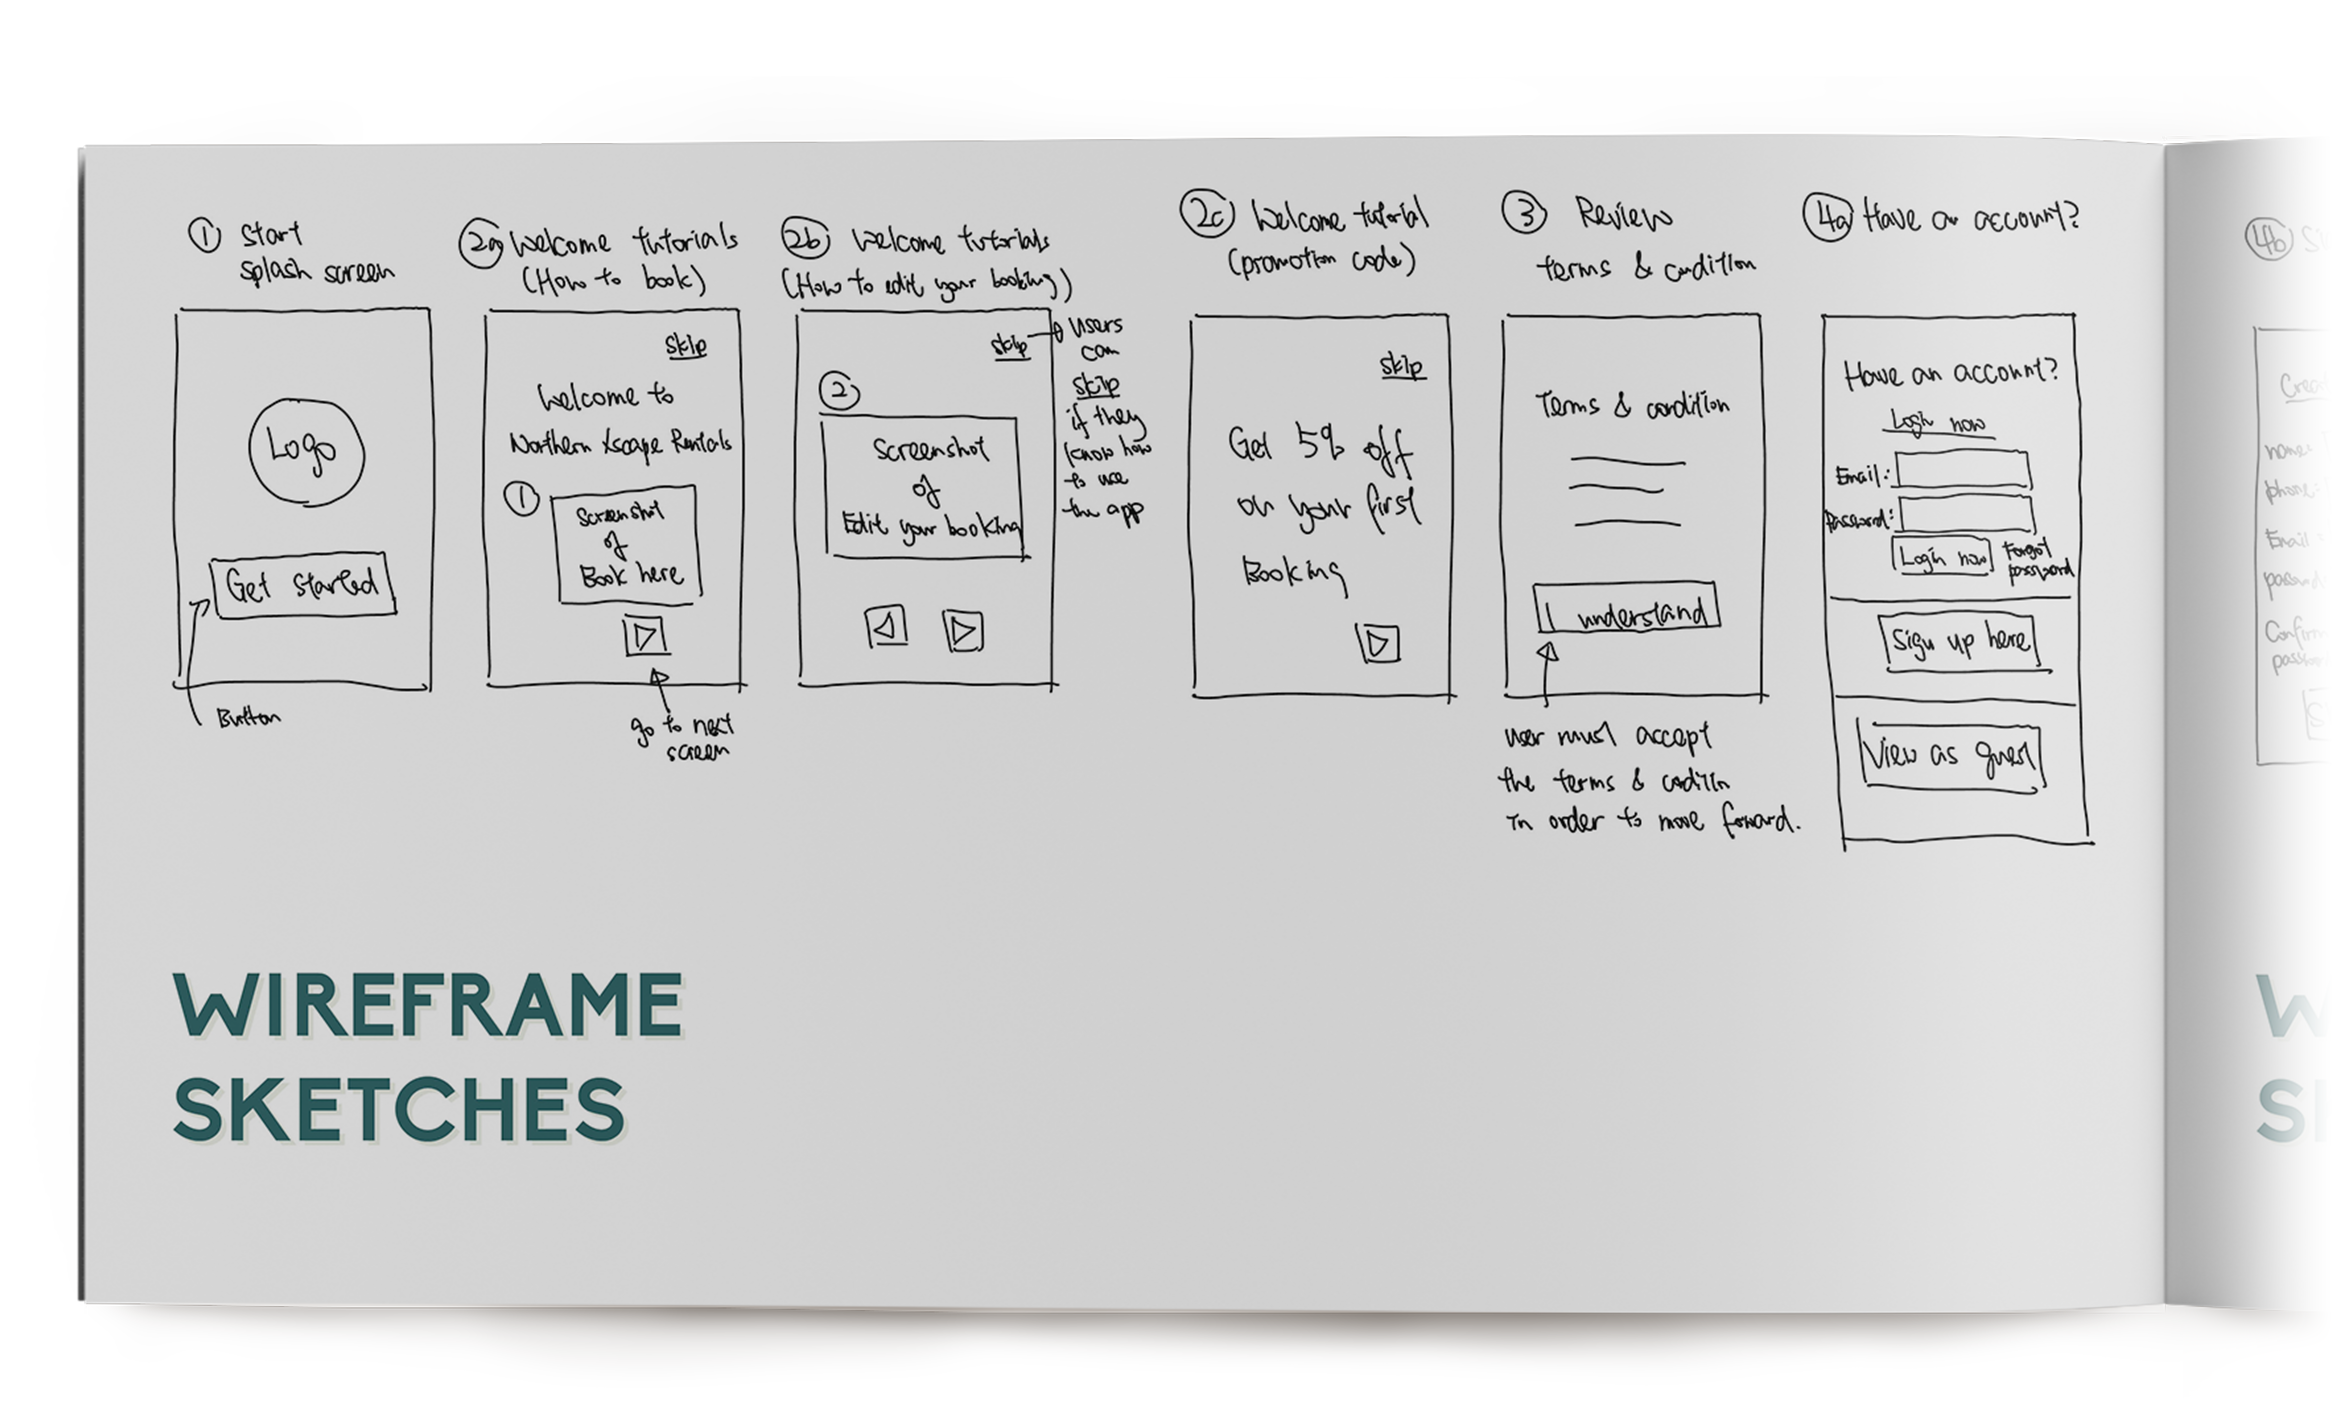 1 Start
splash screen
Logo
Get started
Button
2a Welcome tutorials
(How to book)
Skip
Welcome to
Northern Xscape Rentals
1
Screenshot
of
Book here
go to next
screen
2b Welcome tutorials
(How to edit your booking)
skip
Users
can
skip
if they
know how
to use
the app
2
Screenshot
of
Edit your booking
2c Welcome tutorial
(promotion code)
skip
Get 5% off
on your first
Booking
3 Review
terms & condition
Terms & condition
I understand
user must accept
the terms & condition
in order to move forward.
4a Have an account?
Have an account?
Login now
Email:
Password:
Login now
Forgot
password
Sign up here
View as guest
4b
name:
phone:
Email
WIREFRAME
SKETCHES